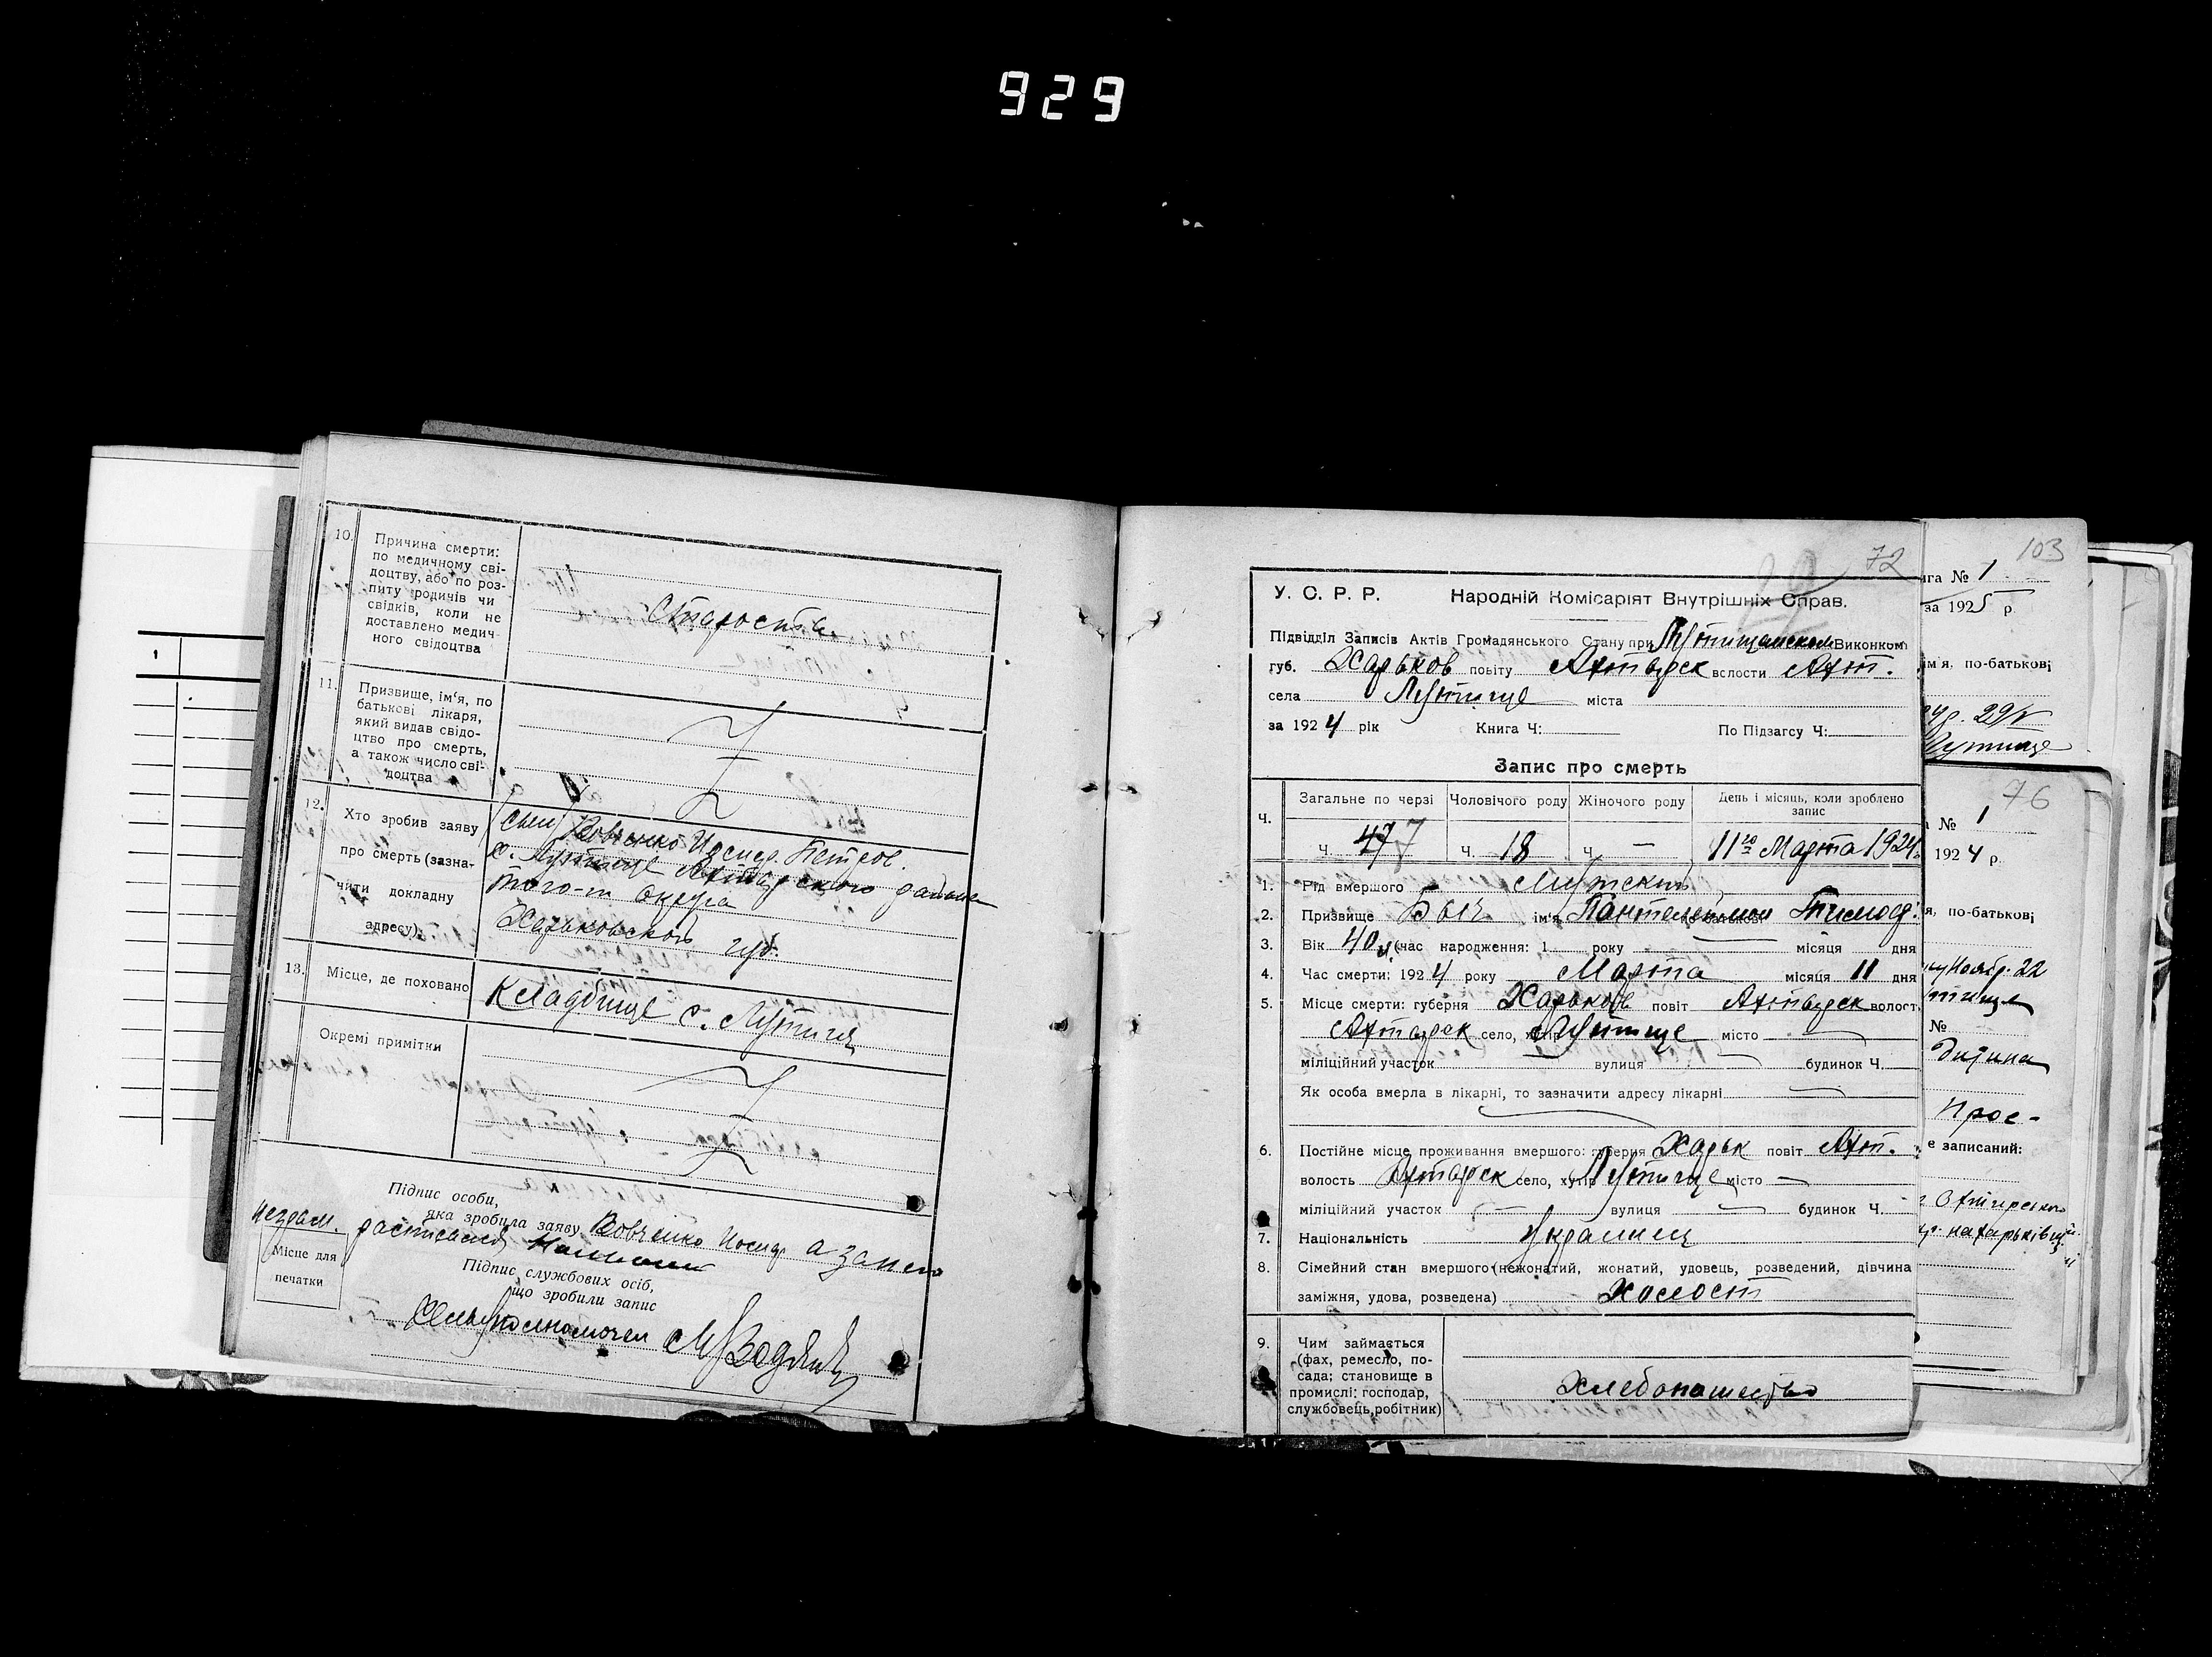 929
10. Причина смерти:
по медичному сві-
доцтву, або по роз-
питу родичів чи
свідків, коли не
доставлено медич-
ного свідоцтва
Старость
11. Призвище, ім'я, по
батькові лікаря,
який видав свідо-
цтво про смерть,
а також число сві-
доцтва
12. Хто зробив заяву
про смерть (зазна-
чити докладну
адресу).
(сын) Вовченко Иосиф. Петров.
с. Лутище Ахтырского района
того-ж округа
Харьковской губ.
13. Місце, де поховано
Кладбище с. Лутище
Окремі примітки
Підпис особи,
яка зробила заяву Вовченко Иосиф а за него
неграм.
Місце для
печатки
Підпис службових осіб,
що зробили запис
72
У. С. Р. Р. Народній Комісаріят Внутрішніх Справ.
Підвідділ Записів Актів Громадянського Стану при Лутищанском Виконком
губ. Харьков повіту Ахтырск волости Ахт.
села Лутище міста
за 1924 рік Книга Ч: По Підзагсу Ч:
Запис про смерть
Ч. Загальне по черзі Чоловічого роду Жіночого роду День і місяць, коли зроблено
запис
Ч. 47 Ч. 18 Ч. — 11го Марта 1924
1. Рід вмершого Мужской
2. Призвище Бык ім'я, по батькові Пантелеймон Тимоф.
3. Вік 40 (час народження: 1 року місяця дня
4. Час смерти: 1924 року Марта місяця 11 дня
5. Місце смерти: губерня Харьков повіт Ахтырск волост.
Ахтырск село, хутір Лутище місто
міліційний участок вулиця будинок Ч.
Як особа вмерла в лікарні, то зазначити адресу лікарні
6. Постійне місце проживання вмершого: губерня Харьк повіт Ахт.
волость Ахтырск село, хутір Лутище місто —
міліційний участок — вулиця будинок Ч.
7. Національність Украинец
8. Сімейний стан вмершого (нежонатий, жонатий, удовець, розведений, дівчина
заміжня, удова, розведена) Холост
9. Чим займається
(фах, ремесло, по-
сада; становище в
промислі: господар,
службовець, робітник)
Хлебопашество
103
нига № 1
за 1925 р.
ім'я, по-батькові
Лутище
76
№ 1
1924 р.
я, по-батькові
№
Прос-
е записаний:
1